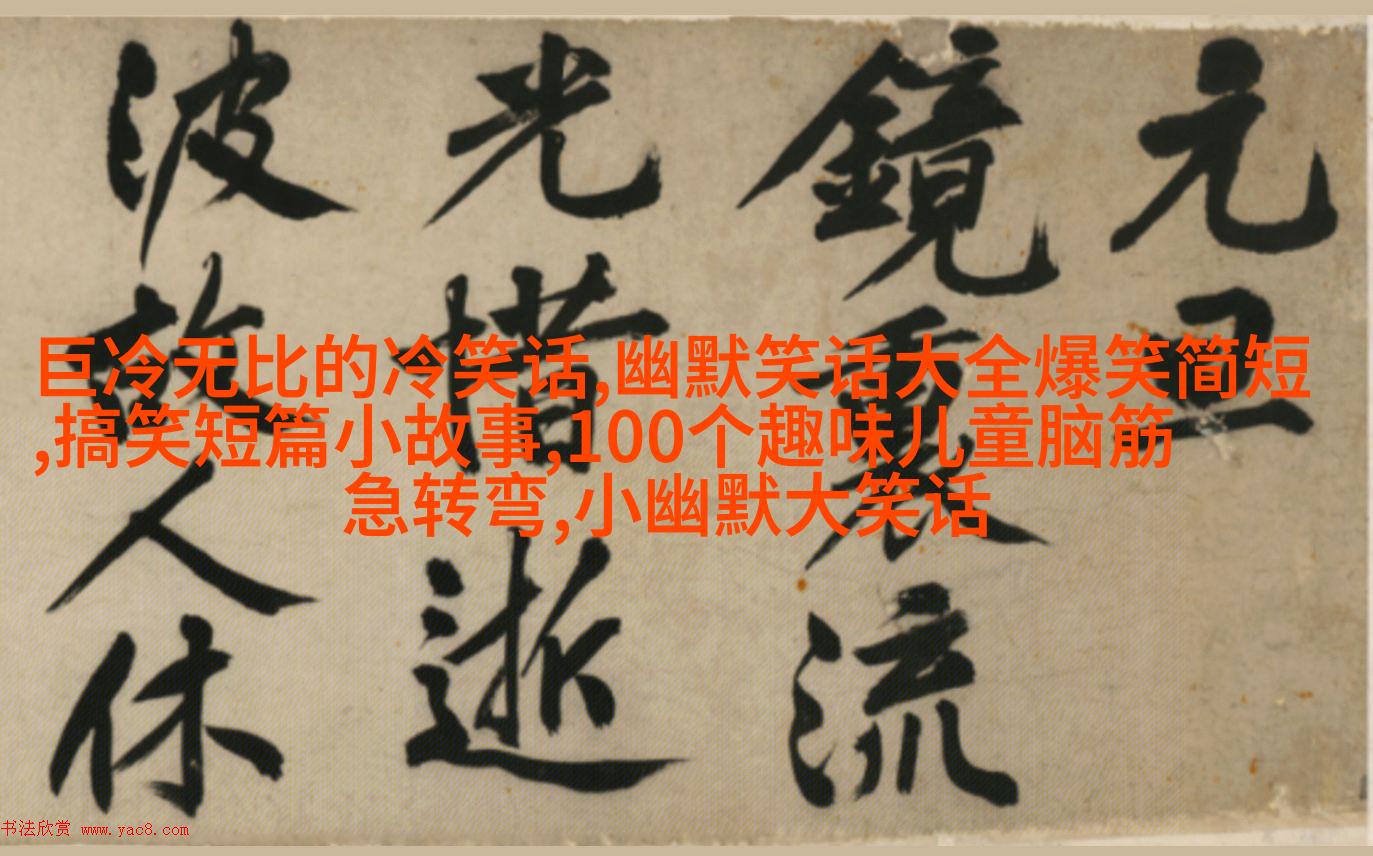 巨冷无比的冷笑话,幽默笑话大全爆笑简短
,搞笑短篇小故事,100个趣味儿童脑筋
急转弯,小幽默大笑话
元
鏡裏流
光惜逝
波故人休
书法欣赏 www.yac8.com